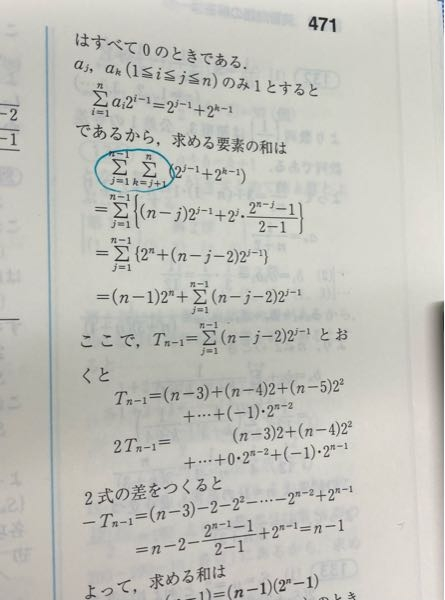 471
はすべて0のときである.
a_j, a_k (1≦i≦j≦n) のみ1とすると
\sum_{i=1}^{n} a_i 2^{i-1} = 2^{j-1} + 2^{k-1}
であるから,求める要素の和は
\sum_{j=1}^{n-1} \sum_{k=j+1}^{n} (2^{j-1} + 2^{k-1})
= \sum_{j=1}^{n-1} \left\{ (n-j)2^{j-1} + 2^j \cdot \frac{2^{n-j}-1}{2-1} \right\}
= \sum_{j=1}^{n-1} \{ 2^n + (n-j-2)2^{j-1} \}
= (n-1)2^n + \sum_{j=1}^{n-1} (n-j-2)2^{j-1}
ここで, T_{n-1} = \sum_{j=1}^{n-1} (n-j-2)2^{j-1} とお
くと
T_{n-1} = (n-3) + (n-4)2 + (n-5)2^2
+ \cdots + (-1) \cdot 2^{n-2}
2T_{n-1} = (n-3)2 + (n-4)2^2
+ \cdots + 0 \cdot 2^{n-2} + (-1) \cdot 2^{n-1}
2式の差をつくると
-T_{n-1} = (n-3) - 2 - 2^2 - \cdots - 2^{n-2} + 2^{n-1}
= n - 2 - \frac{2^{n-1}-1}{2-1} + 2^{n-1} = n - 1
よって,求める和は
= (n-1)(2^n - 1)